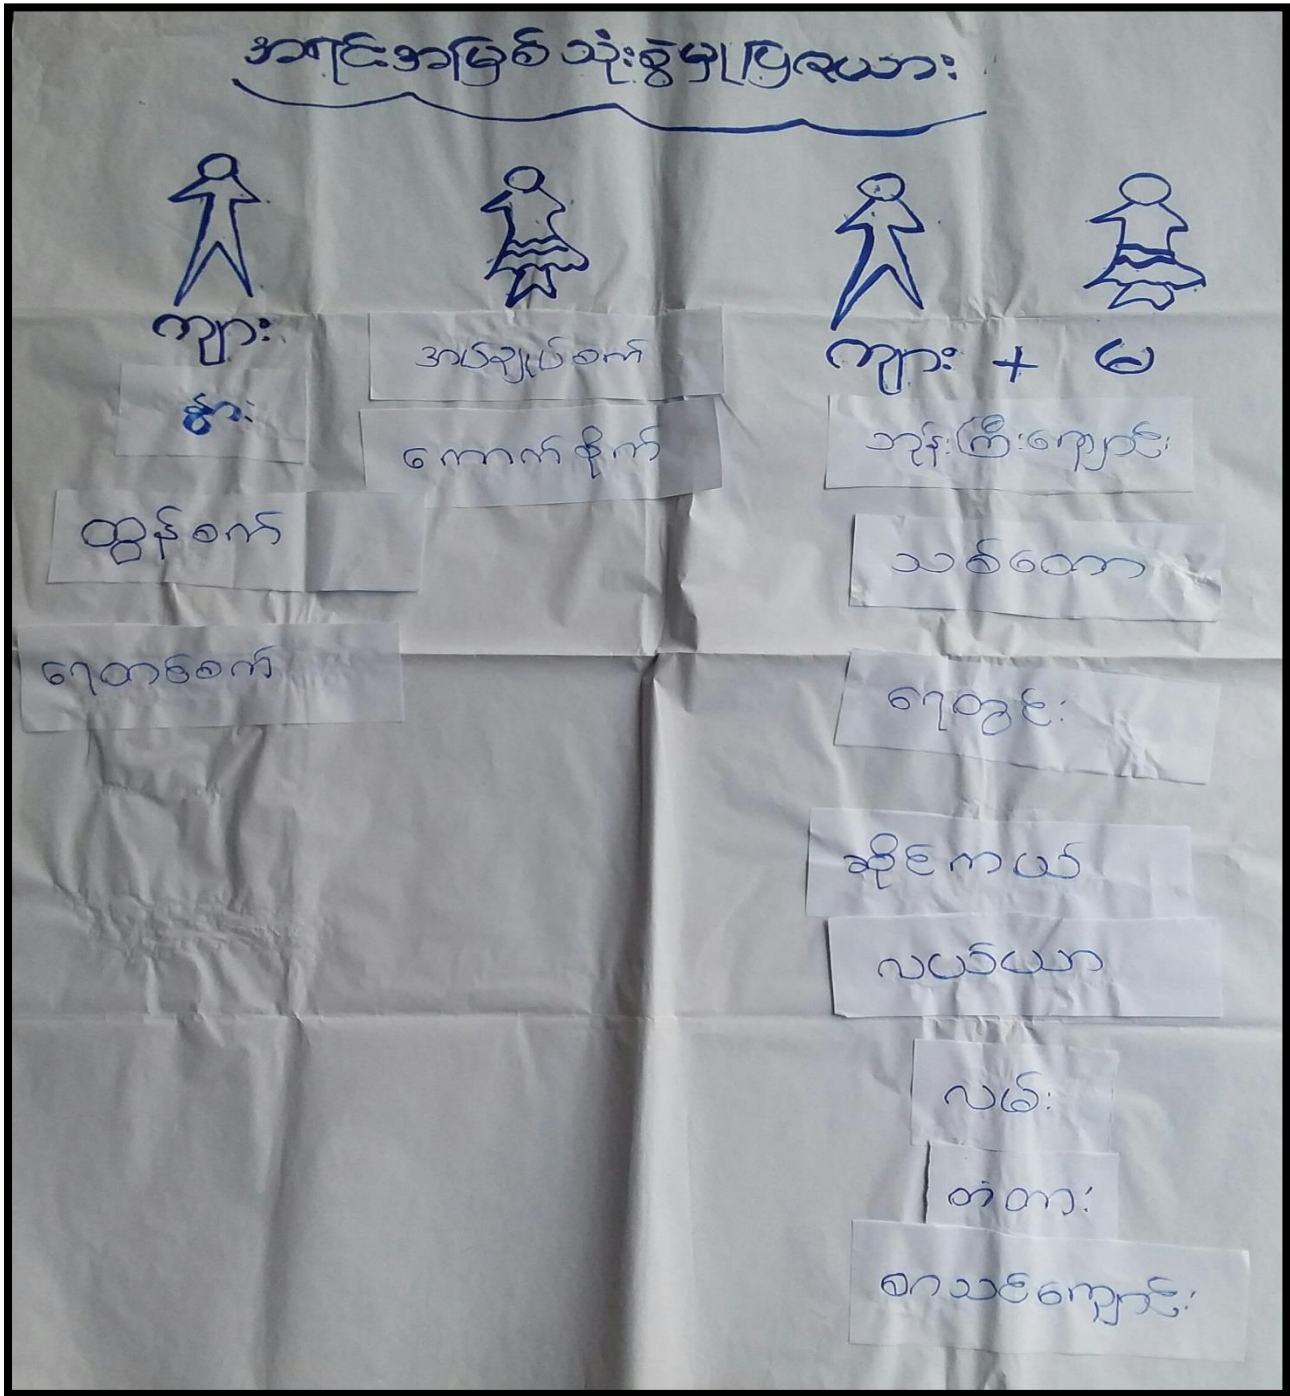 အရင်းအမြစ် သုံးစွဲမှုပြဇယား
ကျား
နွား
ထွန်စက်
ရေတင်စက်
အပ်ချုပ်စက်
ကောက်စိုက်
ကျား + မ
ဘုန်းကြီးကျောင်း
သစ်တော
ရေတွင်း
ဆိုင်ကယ်
လယ်ယာ
လမ်း
တံတား
စာသင်ကျောင်း